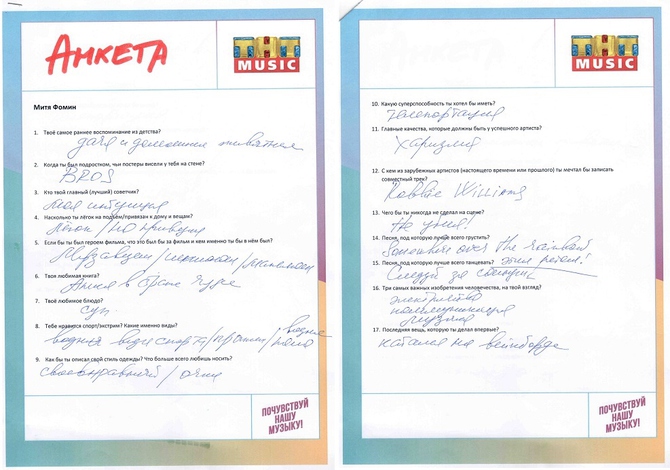 АНКЕТА
ТНТ
MUSIC
Митя Фомин
1. Твоё самое раннее воспоминание из детства?
дача и домашние животные
2. Когда ты был подростком, чьи постеры висели у тебя на стене?
BROS
3. Кто твой главный (лучший) советчик?
моя интуиция
4. Насколько ты лёгок на подъём/привязан к дому и вещам?
лёгок / по привязан
5. Если бы ты был героем фильма, что это был бы за фильм и кем именно ты бы в нём был?
6. Твоя любимая книга?
Алиса в стране чудес
7. Твоё любимое блюдо?
суп
8. Тебе нравится спорт/экстрим? Какие именно виды?
водные виды спорта /
9. Как бы ты описал свой стиль одежды? Что больше всего любишь носить?
своенравный / очки
ПОЧУВСТВУЙ
НАШУ
МУЗЫКУ!
ТНТ
MUSIC
10. Какую суперспособность ты хотел бы иметь?
телепортация
11. Главные качества, которые должны быть у успешного артиста?
харизма
12. С кем из зарубежных артистов (настоящего времени или прошлого) ты мечтал бы записать
совместный трек?
Robbie Williams
13. Чего бы ты никогда не сделал на сцене?
Не умер!
14. Песня, под которую лучше всего грустить?
Somewhere over the rainbow
15. Песня, под которую лучше всего танцевать?
Следуй за солнцем
16. Три самых важных изобретения человечества, на твой взгляд?
электричество
канализация
музыка
17. Последняя вещь, которую ты делал впервые?
катался на вейкборде
ПОЧУВСТВУЙ
НАШУ
МУЗЫКУ!